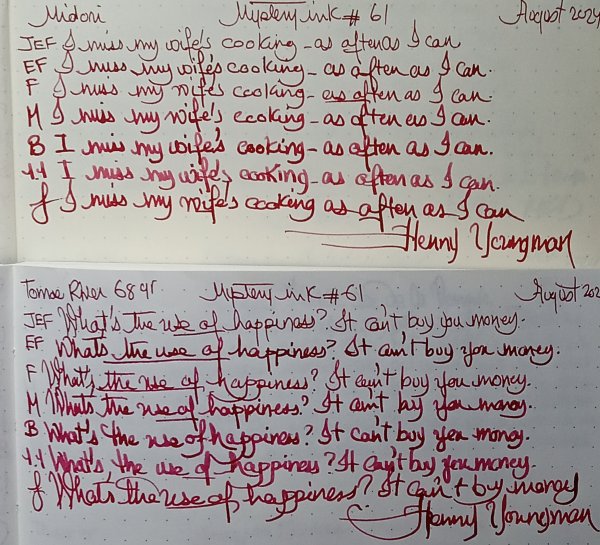 Midori Mystery ink # 61 August 2024
JEF I miss my wife's cooking - as often as I can
EF I miss my wife's cooking - as often as I can.
F I miss my wife's cooking - as often as I can.
M I miss my wife's cooking - as often as I can.
B I miss my wife's cooking - as often as I can.
1.1 I miss my wife's cooking - as often as I can.
f I miss my wife's cooking as often as I can
Henny Youngman
Tomoe River 68gr Mystery ink # 61 August 202
JEF What's the use of happiness? It can't buy you money.
EF What's the use of happiness? It can't buy you money.
F What's the use of happiness? It can't buy you money.
M What's the use of happiness? It can't buy you money.
B What's the use of happiness? It can't buy you money.
1.1 What's the use of happiness? It can't buy you money.
f What's the use of happiness? It can't buy money
Henny Youngman